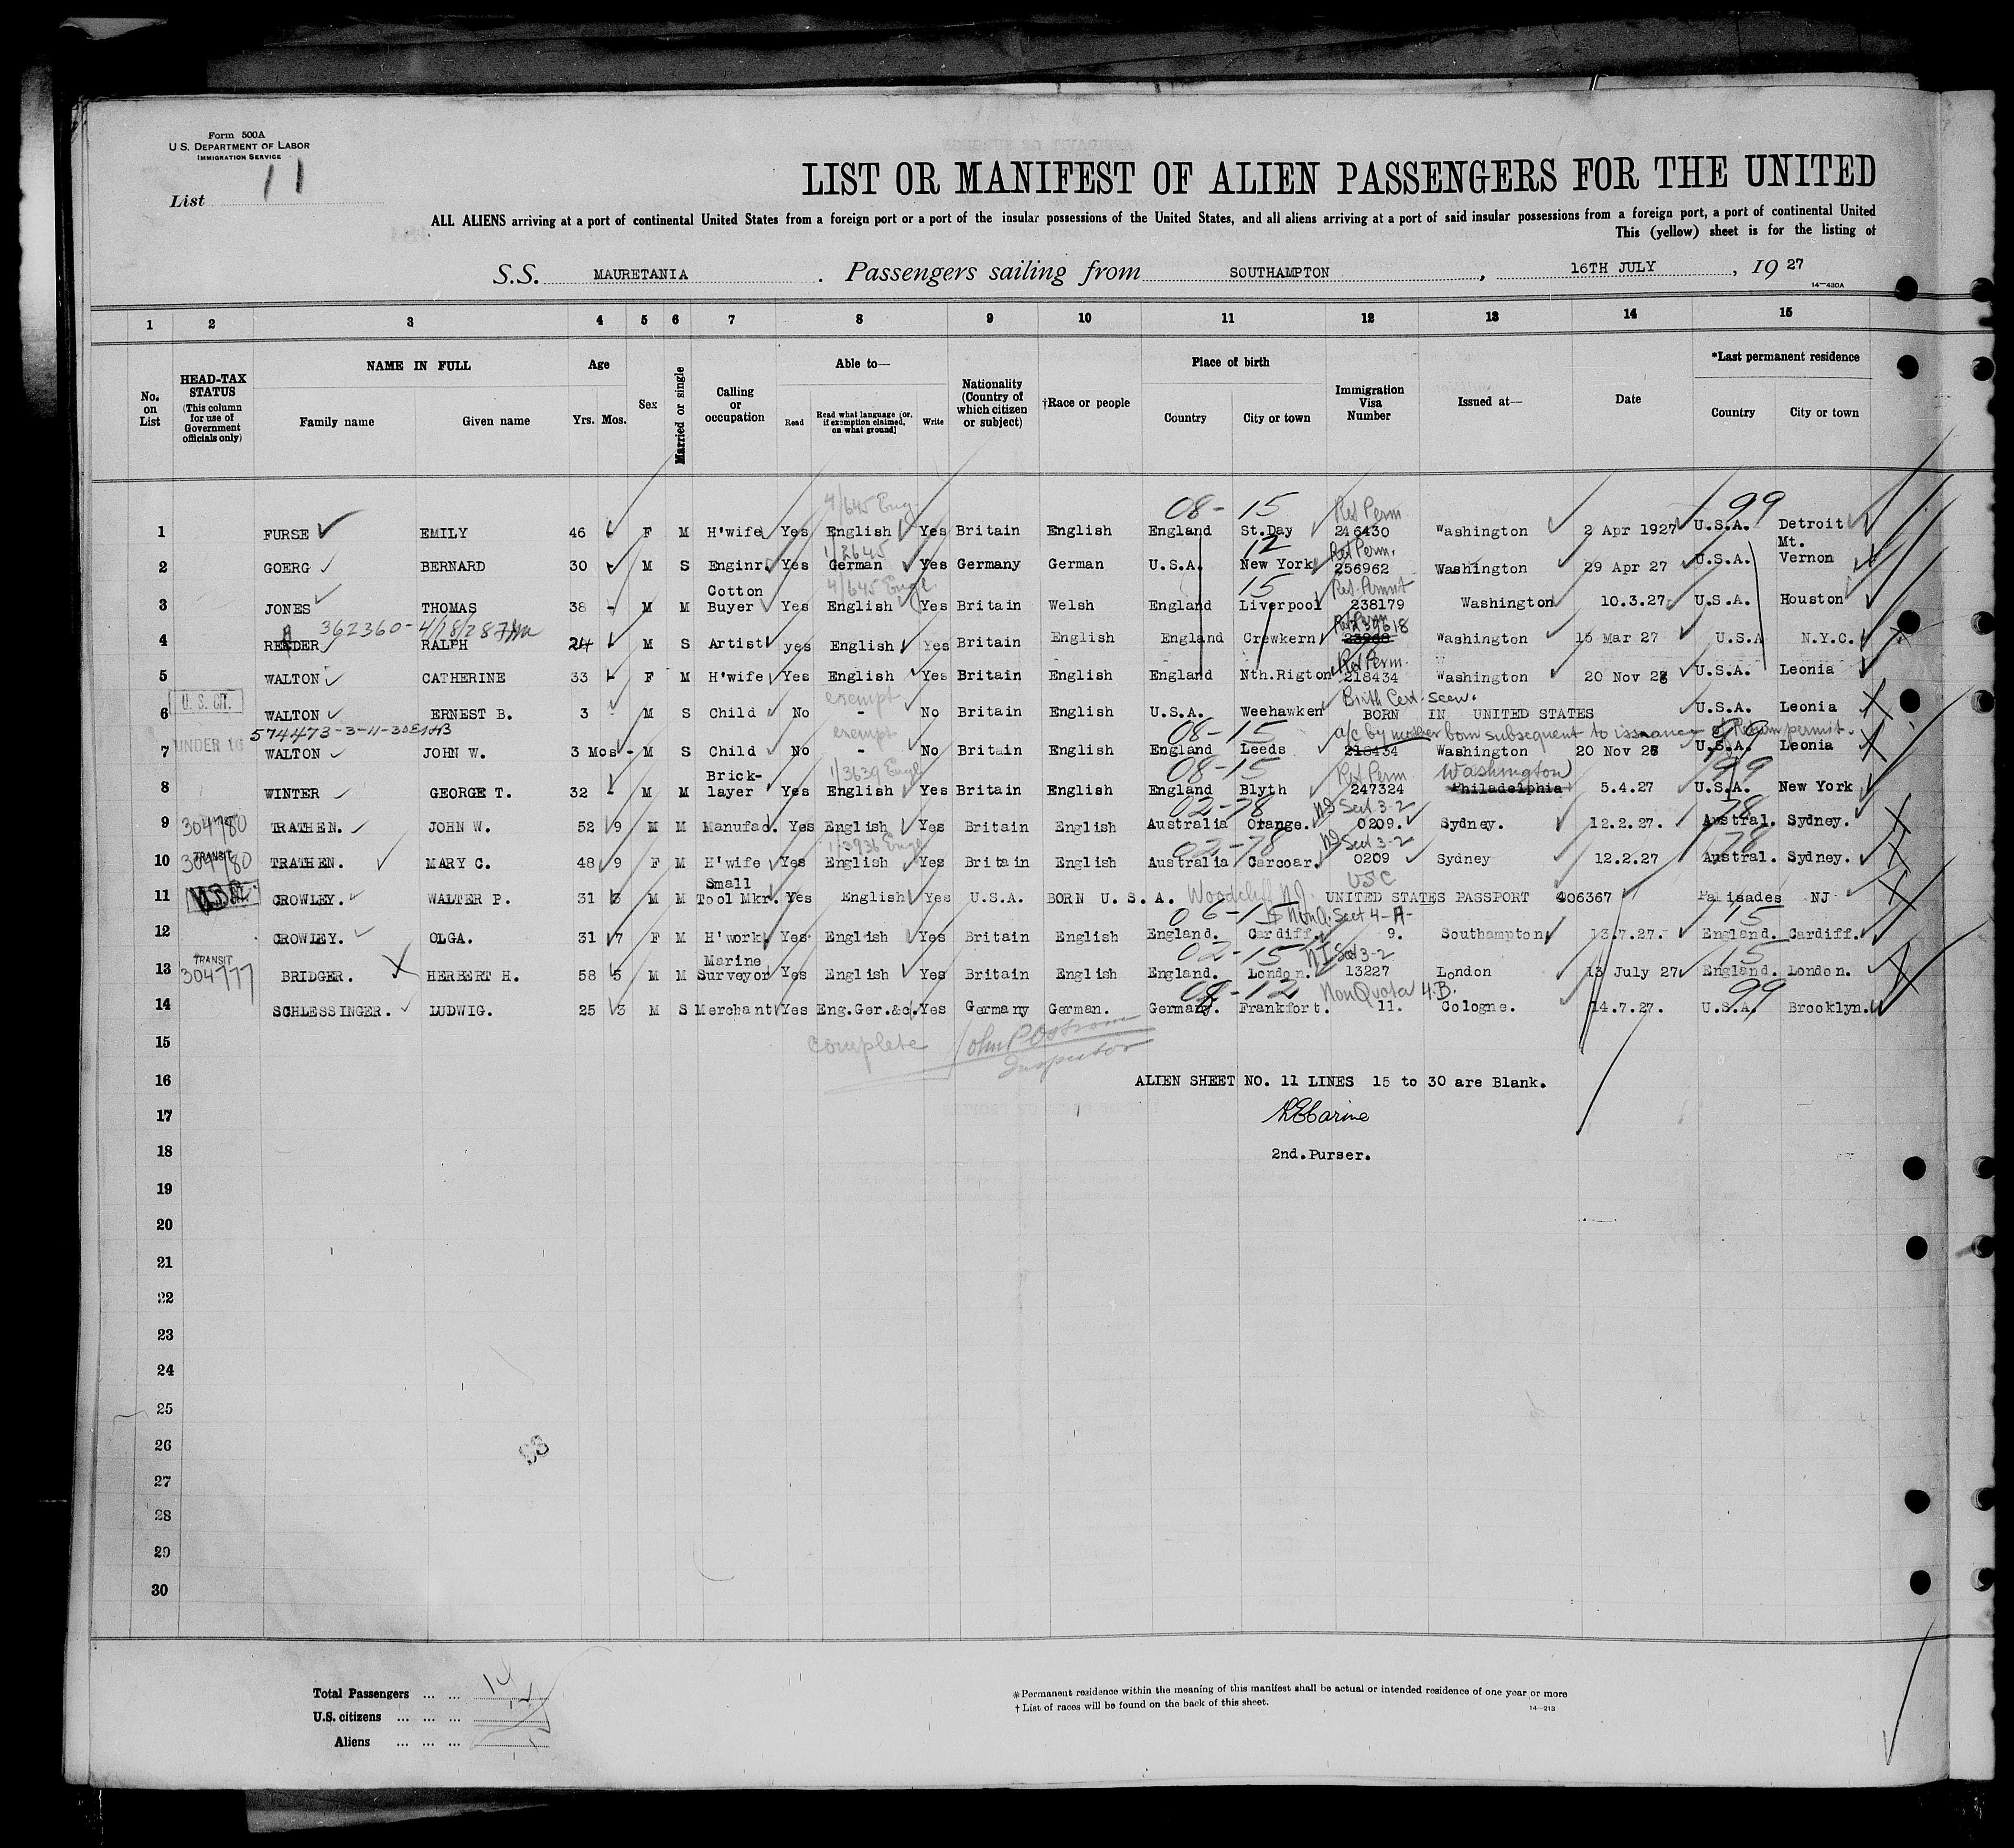 Form 500A
U.S. DEPARTMENT OF LABOR
IMMIGRATION SERVICE
List 11
LIST OR MANIFEST OF ALIEN PASSENGERS FOR THE UNITED
ALL ALIENS arriving at a port of continental United States from a foreign port or a port of the insular possessions of the United States, and all aliens arriving at a port of said insular possessions from a foreign port, a port of continental United
This (yellow) sheet is for the listing of
S.S. MAURETANIA . Passengers sailing from SOUTHAMPTON , 16TH JULY , 19 27
14—430A
1 2 3 4 5 6 7 8 9 10 11 12 13 14 15
No. on List
HEAD-TAX STATUS (This column for use of Government officials only)
NAME IN FULL
Family name Given name
Age
Yrs. Mos.
Sex
Married or single
Calling or occupation
Able to—
Read
Read what language [or, if exemption claimed, on what ground]
Write
Nationality (Country of which citizen or subject)
†Race or people
Place of birth
Country City or town
Immigration Visa Number
Issued at—
Date
*Last permanent residence
Country City or town
4/645 Eng. 08-15 Ret Perm 99
1 FURSE EMILY 46 - F M H'wife Yes English Yes Britain English England St.Day 246430 Washington 2 Apr 1927 U.S.A. Detroit
1/2645 12 Ret Perm.
2 GOERG BERNARD 30 - M S Enginr. Yes German Yes Germany German U.S.A. New York 256962 Washington 29 Apr 27 U.S.A. Mt. Vernon
4/645 Engl. 15 Ret. Permit
3 JONES THOMAS 38 - M M Cotton Buyer Yes English Yes Britain Welsh England Liverpool 238179 Washington 10.3.27 U.S.A. Houston
362360-4/18/28
Ret Perm 239618
4 READER RALPH 24 M S Artist yes English Yes Britain English England Crewkern Washington 15 Mar 27 U.S.A N.Y.C.
Ret Perm.
5 WALTON CATHERINE 33 - F M H'wife Yes English Yes Britain English England Nth.Rigton 218434 Washington 20 Nov 26 U.S.A. Leonia
U. S. CIT. exempt Birth Cert. seen.
6 WALTON ERNEST B. 3 M S Child No - No Britain English U.S.A. Weehawken BORN IN UNITED STATES U.S.A. Leonia
574473-3-11-30
UNDER 16 exempt 08-15 a/c by mother born subsequent to issuance of Return permit. 99
7 WALTON JOHN W. 3 Mos - M S Child No - No Britain English England Leeds 218434 Washington 20 Nov 26 U.S.A. Leonia
1/3639 Engl 08-15 Ret Perm Washington 99
8 WINTER GEORGE T. 32 - M M Brick-layer Yes English Yes Britain English England Blyth 247324 Philadelphia 5.4.27 U.S.A. New York
304780 02-78 Sect 3-2 78
9 TRATHEN. JOHN W. 52 9 M M Manufac. Yes English Yes Britain English Australia Orange. 0209. Sydney. 12.2.27. Austral. Sydney.
TRANSIT 304780 1/3936 Engl 02-78 Sect 3-2 78
10 TRATHEN. MARY C. 48 9 F M H'wife Yes English Yes Britain English Australia Carcoar. 0209 Sydney 12.2.27 Austral. Sydney.
USC
11 CROWLEY. WALTER P. 31 3 M M Small Tool Mkr. Yes English Yes U.S.A. BORN U. S. A. Woodcliff NJ. UNITED STATES PASSPORT 406367 Palisades NJ
06-15 NonQ. Sect 4-A- 15
12 CROWLEY. OLGA. 31 7 F M H'work. Yes English Yes Britain English England. Cardiff. 9. Southampton 13.7.27. England. Cardiff.
TRANSIT 304777 02-15 Sect 3-2 15
13 BRIDGER. HERBERT H. 58 5 M M Marine Surveyor Yes English Yes Britain English England. London. 13227 London 13 July 27 England. London.
08-12 NonQuota 4.B. 99
14 SCHLESSINGER. LUDWIG. 25 3 M S Merchant Yes Eng.Ger.&c. Yes Germany German. Germany. Frankfort. 11. Cologne. 14.7.27. U.S.A. Brooklyn.
15 complete John P Ostrom
Inspector
16 ALIEN SHEET NO. 11 LINES 15 to 30 are Blank.
17
18 2nd.Purser.
19
20
21
22
23
24
25
26
27
28
29
30
Total Passengers ... ... 14
U.S. citizens ... ... ...
Aliens ... ... ...
*Permanent residence within the meaning of this manifest shall be actual or intended residence of one year or more
† List of races will be found on the back of this sheet.
14—213